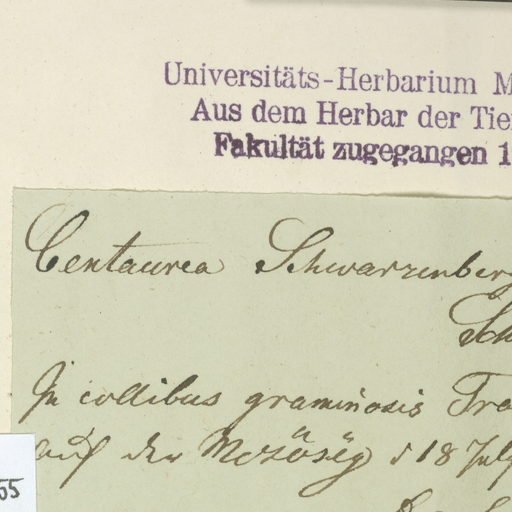 Universitäts-Herbarium M
Aus dem Herbar der Tier
Fakultät zugegangen 1
Centaurea Schwarzenberg
Sch
In collibus graminosis Tra
auf der Mezöség d 18 July
55